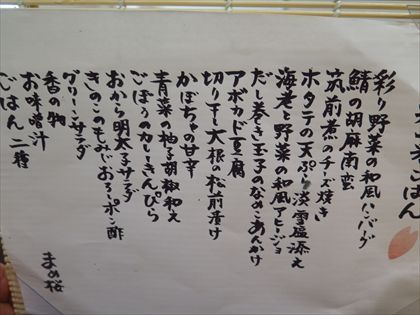 ごはん
彩り野菜の和風ハンバーグ
鯖の胡麻南蛮
筑前煮のチーズ焼き
ホタテの天ぷら淡雪塩添え
海老と野菜の和風アヒージョ
だし巻き玉子のなめこあんかけ
アボカド豆腐
切り干大根の松前漬け
かぼちゃの甘辛
青菜の柚子胡椒和え
ごぼうのカレーきんぴら
おから明太子サラダ
きのこのもみじおろしポン酢
グリーンサラダ
香の物
お味噌汁
ごはん二種
まめ桜